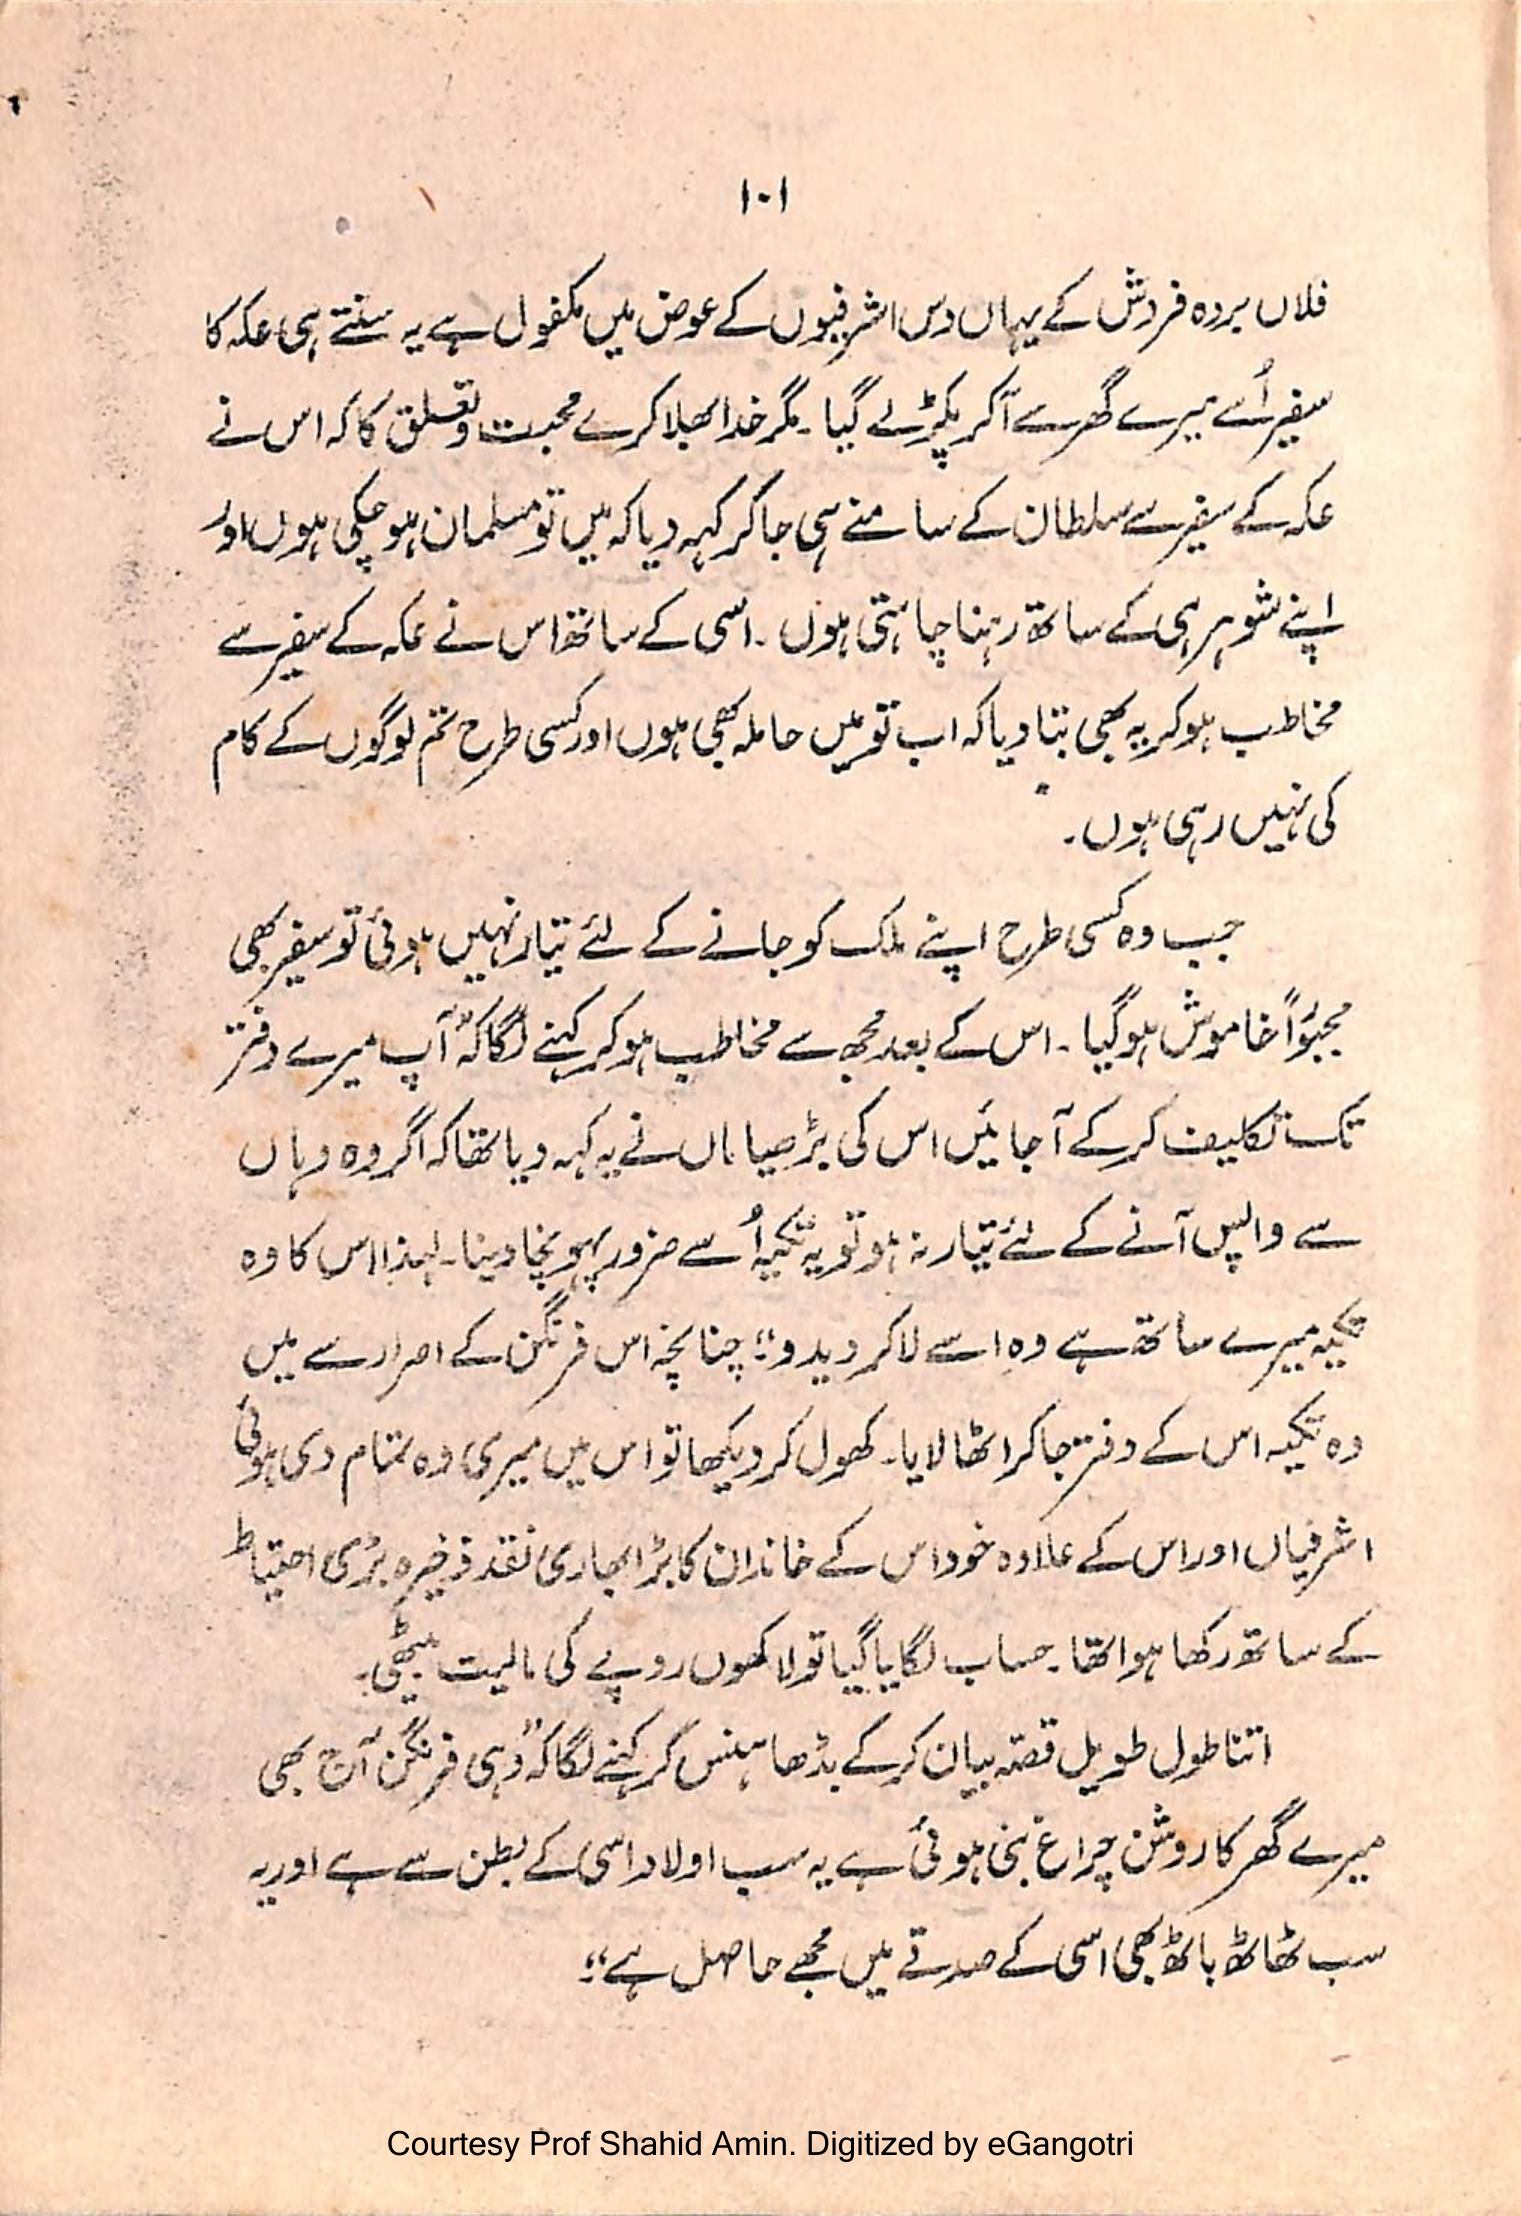 ۱۰۱
فلاں بردہ فروش کے یہاں دس اشرفیوں کے عوض میں مکفول ہے یہ سنتے ہی عکہ کا
سفیر اُسے میرے گھر سے آکر پکڑ لے گیا۔ مگر خدا بھلا کرے محبت و تعلق کا کہ اس نے
عکہ کے سفیر سے سلطان کے سامنے ہی جا کر کہہ دیا کہ میں تو مسلمان ہو چکی ہوں اور
اپنے شوہر ہی کے ساتھ رہنا چاہتی ہوں۔ اسی کے ساتھ اس نے عکہ کے سفیر سے
مخاطب ہو کر یہ بھی بتا دیا کہ اب تو میں حاملہ بھی ہوں اور کسی طرح تم لوگوں کے کام
کی نہیں رہی ہوں۔
جب وہ کسی طرح اپنے ملک کو جانے کے لئے تیار نہیں ہوئی تو سفیر بھی
مجبوراً خاموش ہو گیا۔ اس کے بعد مجھ سے مخاطب ہو کر کہنے لگا کہ "آپ میرے دفتر
تک تکلیف کر کے آ جائیں اس کی بڑھیا ماں نے یہ کہہ دیا تھا کہ اگر وہ وہاں
سے واپس آنے کے لئے تیار نہ ہو تو یہ تکیہ اُسے ضرور پہونچا دینا۔ لہذا اس کا وہ
تکیہ میرے ساتھ ہے وہ اسے لا کر دیدو"۔ چنانچہ اس فرنگن کے اصرار سے میں
وہ تکیہ اس کے دفتر جا کر اٹھا لایا۔ کھول کر دیکھا تو اس میں میری وہ تمام دی ہوئی
اشرفیاں اور اس کے علاوہ خود اس کے خاندان کا بڑا بھاری نقد ذخیرہ بڑی احتیاط
کے ساتھ رکھا ہوا تھا۔ حساب لگایا گیا تو لاکھوں روپے کی مالیت بیٹھی۔
اتنا طول طویل قصّہ بیان کر کے بڈھا ہنس کر کہنے لگا کہ "وہی فرنگن آج بھی
میرے گھر کا روشن چراغ بنی ہوئی ہے یہ سب اولاد اسی کے بطن سے ہے اور یہ
سب ٹھاٹھ باٹھ بھی اسی کے صدقے میں مجھے حاصل ہے"۔
Courtesy Prof Shahid Amin. Digitized by eGangotri